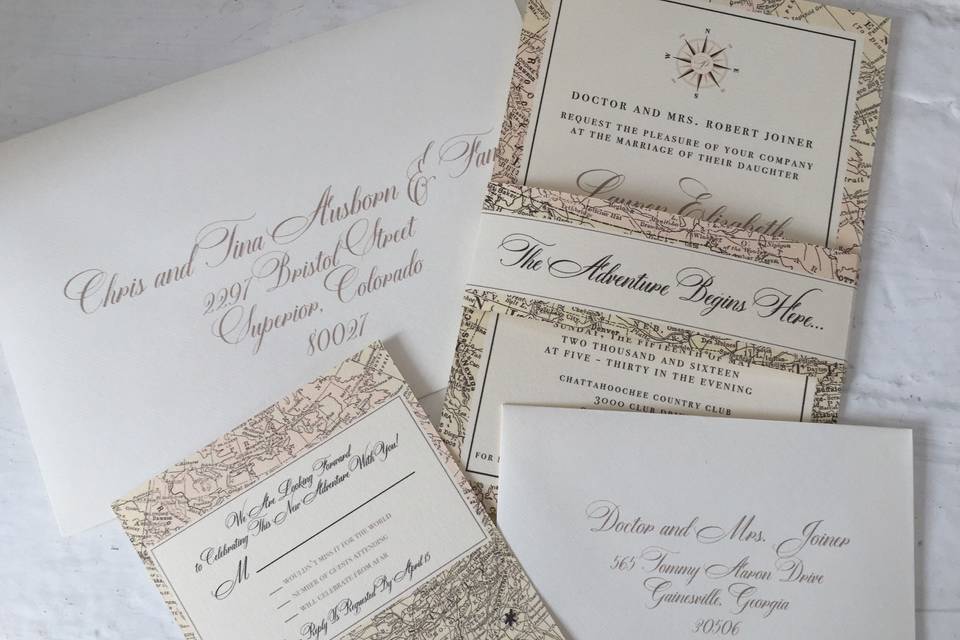 Chris and Tina Ausborn & Fam
2297 Bristol Street
Superior, Colorado
80027
N
W E
S
DOCTOR AND MRS. ROBERT JOINER
REQUEST THE PLEASURE OF YOUR COMPANY
AT THE MARRIAGE OF THEIR DAUGHTER
Lauren Elizabeth
The Adventure Begins Here...
SUNDAY, THE FIFTEENTH OF MA
TWO THOUSAND AND SIXTEEN
AT FIVE - THIRTY IN THE EVENING
CHATTAHOOCHEE COUNTRY CLUB
3000 CLUB DRI
FOR
We Are Looking Forward
to Celebrating This New Adventure With You!
M
WOULDN'T MISS IT FOR THE WORLD
NUMBER OF GUESTS ATTENDING
WILL CELEBRATE FROM AFAR
Reply Is Requested By April 15
Doctor and Mrs. Joiner
565 Tommy Aaron Drive
Gainesville, Georgia
30506